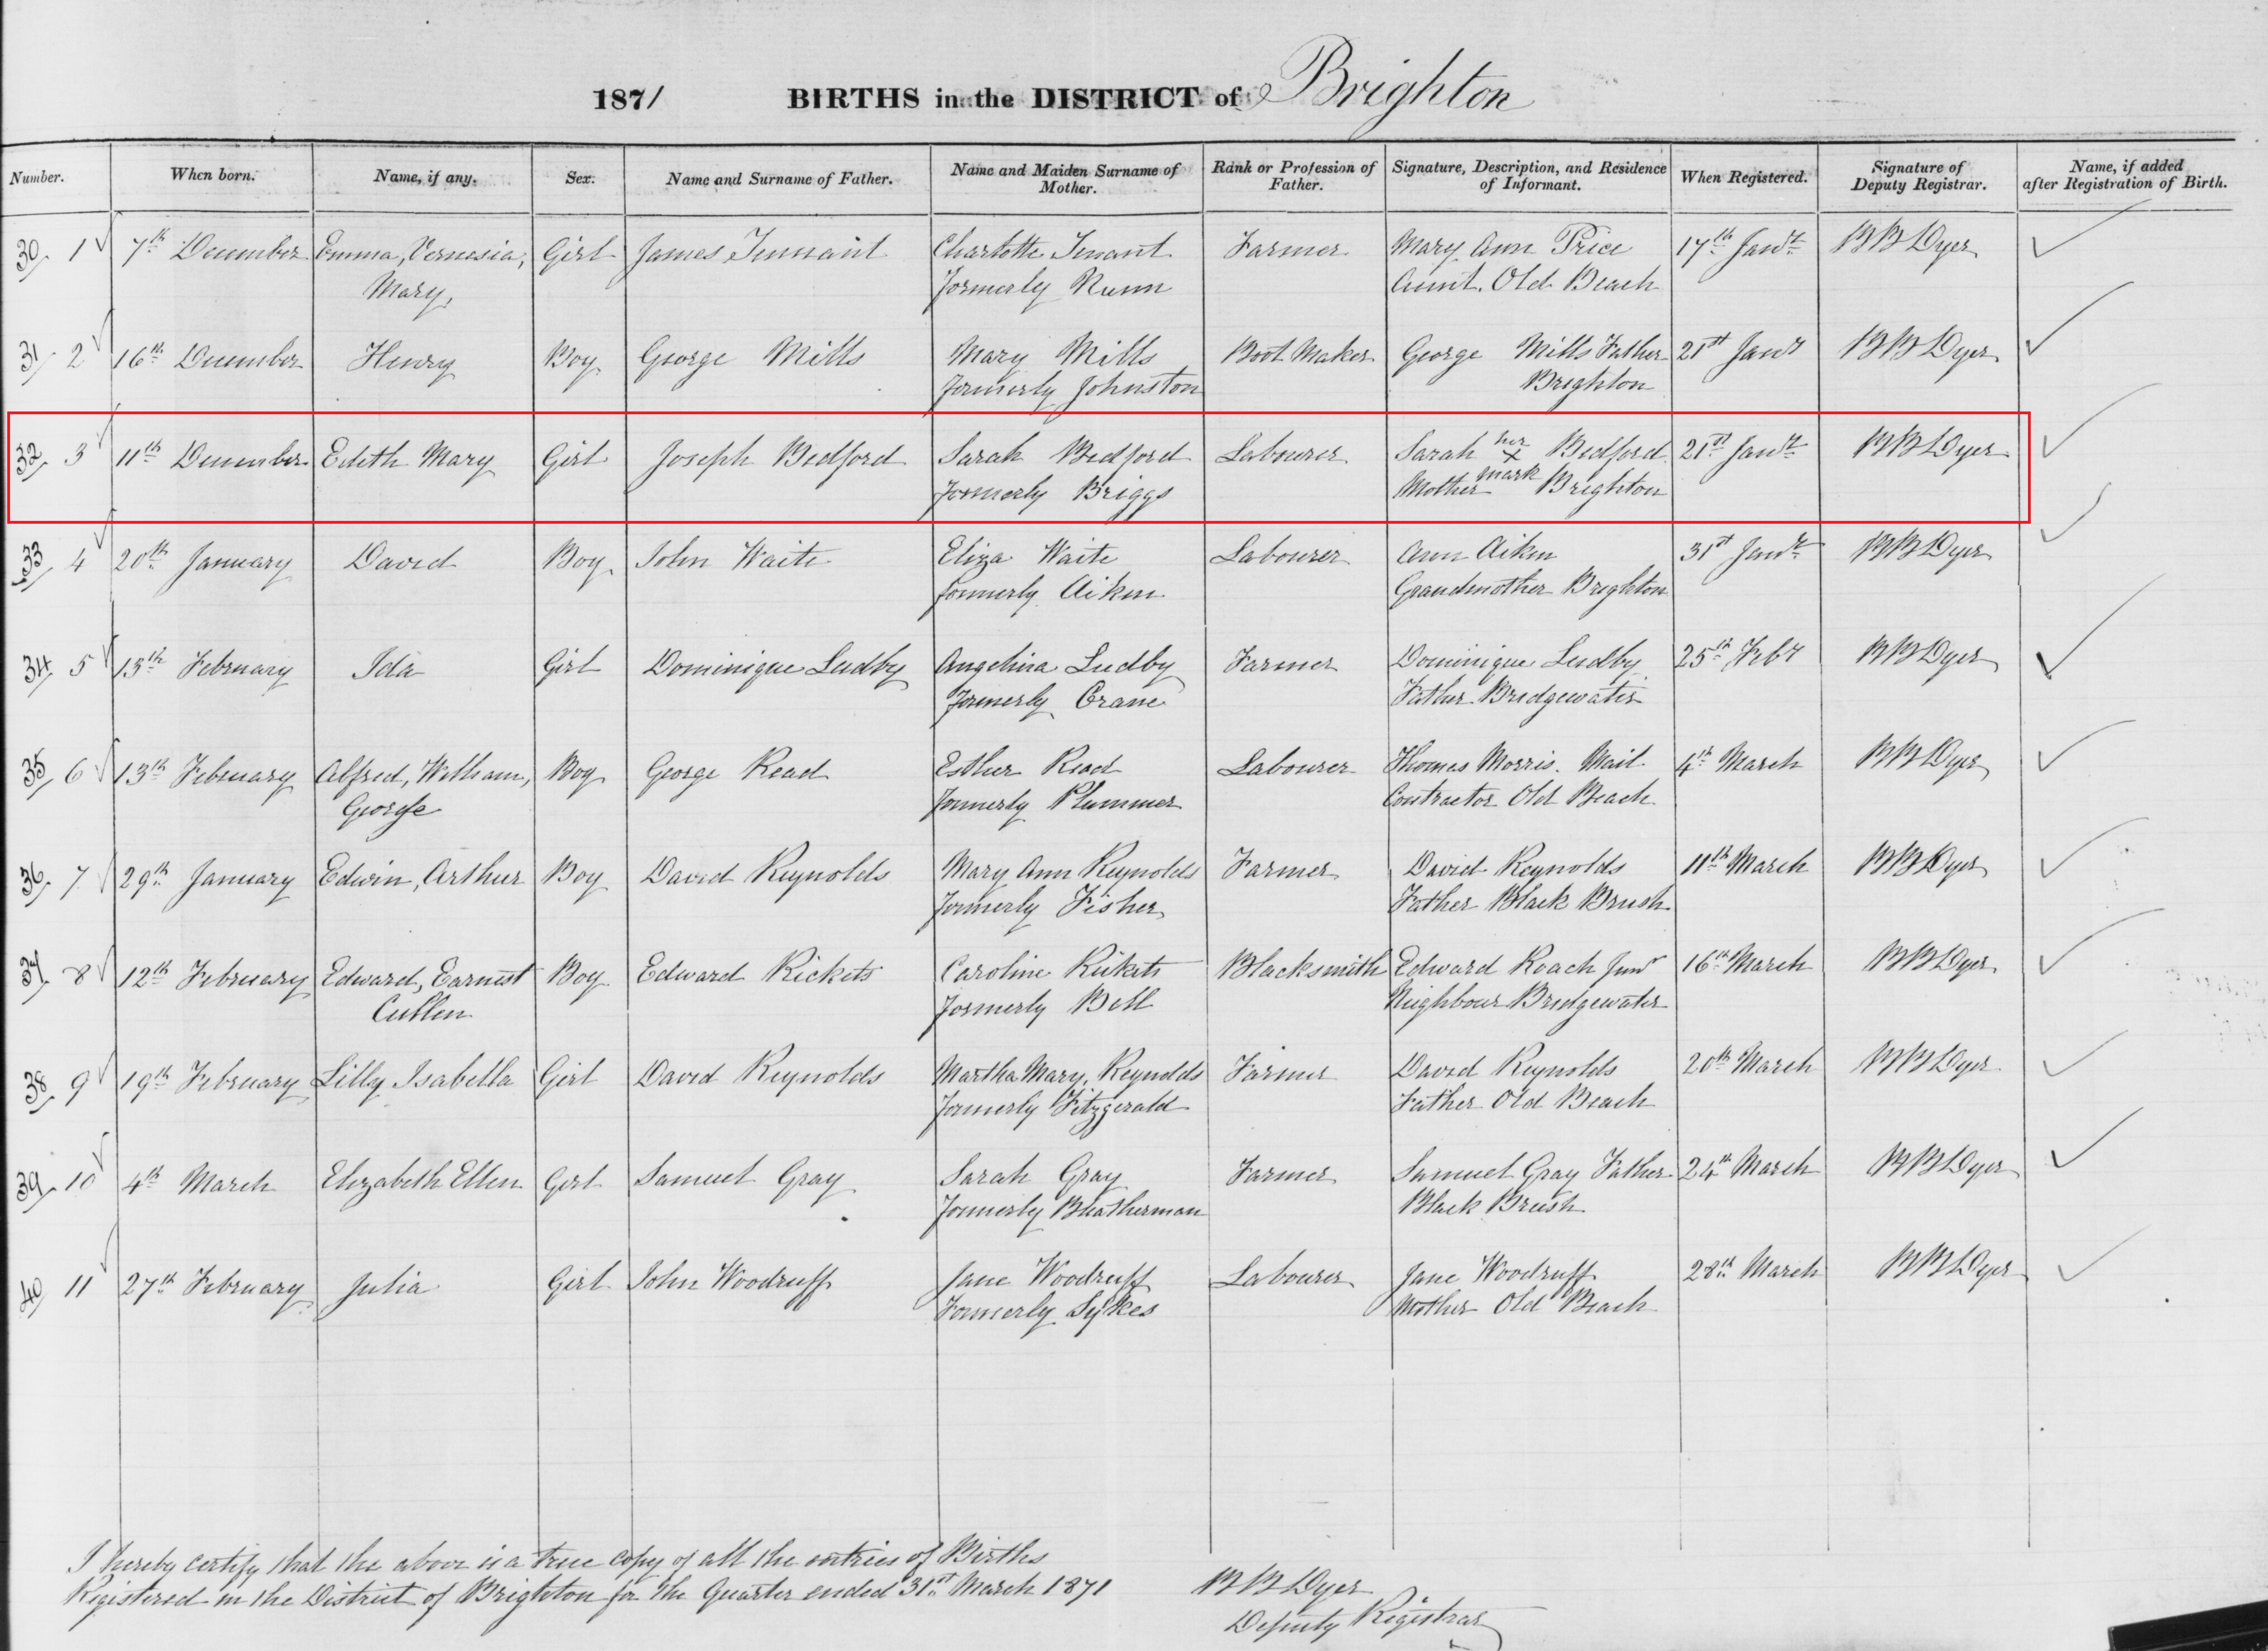 1871 BIRTHS in the DISTRICT of Brighton
Number. When born. Name, if any. Sex. Name and Surname of Father. Name and Maiden Surname of Mother. Rank or Profession of Father. Signature, Description, and Residence of Informant. When Registered. Signature of Deputy Registrar. Name, if added after Registration of Birth.
30/ 1 7th December Emma, Vernesia, Girl James Tennant Charlotte Tennant Farmer Mary Ann Price 17th Janry BB Dyer
Mary, formerly Nunn Aunt. Old Beach
31/ 2 16th December Henry Boy George Mills Mary Mills Boot Maker George Mills Father 21st Janry BB Dyer
formerly Johnston Brighton
32/ 3 11th December Edith Mary Girl Joseph Bedford Sarah Bedford Labourer Sarah her x Bedford 21st Janry BB Dyer
formerly Briggs Mother mark Brighton
33/ 4 20th January David Boy John Waite Eliza Waite Labourer Ann Aiken 31st Janry BB Dyer
formerly Aiken Grandmother Brighton
34/ 5 13th February Ida Girl Dominique Ludby Angelina Ludby Farmer Dominique Ludby 25th Feby BB Dyer
formerly Crane Father Bridgewater
35/ 6 13th February Alfred, William, Boy George Read Esther Read Labourer Thomas Morris. Mail 4th March BB Dyer
George formerly Plummer Contractor Old Beach
36/ 7 29th January Edwin, Arthur Boy David Reynolds Mary Ann Reynolds Farmer David Reynolds 11th March BB Dyer
formerly Fisher Father Black Brush
37/ 8 12th February Edward, Earnest Boy Edward Rickets Caroline Rickets Blacksmith Edward Roach Junr 16th March BB Dyer
Cullen formerly Bell Neighbour Bridgewater
38/ 9 19th February Lilly Isabella Girl David Reynolds Martha Mary, Reynolds Farmer David Reynolds 20th March BB Dyer
formerly Fitzgerald Father Old Beach
39/ 10 4th March Elizabeth Ellen Girl Samuel Gray Sarah Gray Farmer Samuel Gray Father 24th March BB Dyer
formerly Black Brush
40/ 11 27th February Julia Girl John Woodruff Jane Woodruff Labourer Jane Woodruff 28th March BB Dyer
formerly Sykes Mother Old Beach
I hereby certify that the above is a true copy of all the entries of Births
Registered in the District of Brighton for the Quarter ended 31st March 1871 BB Dyer
Deputy Registrar